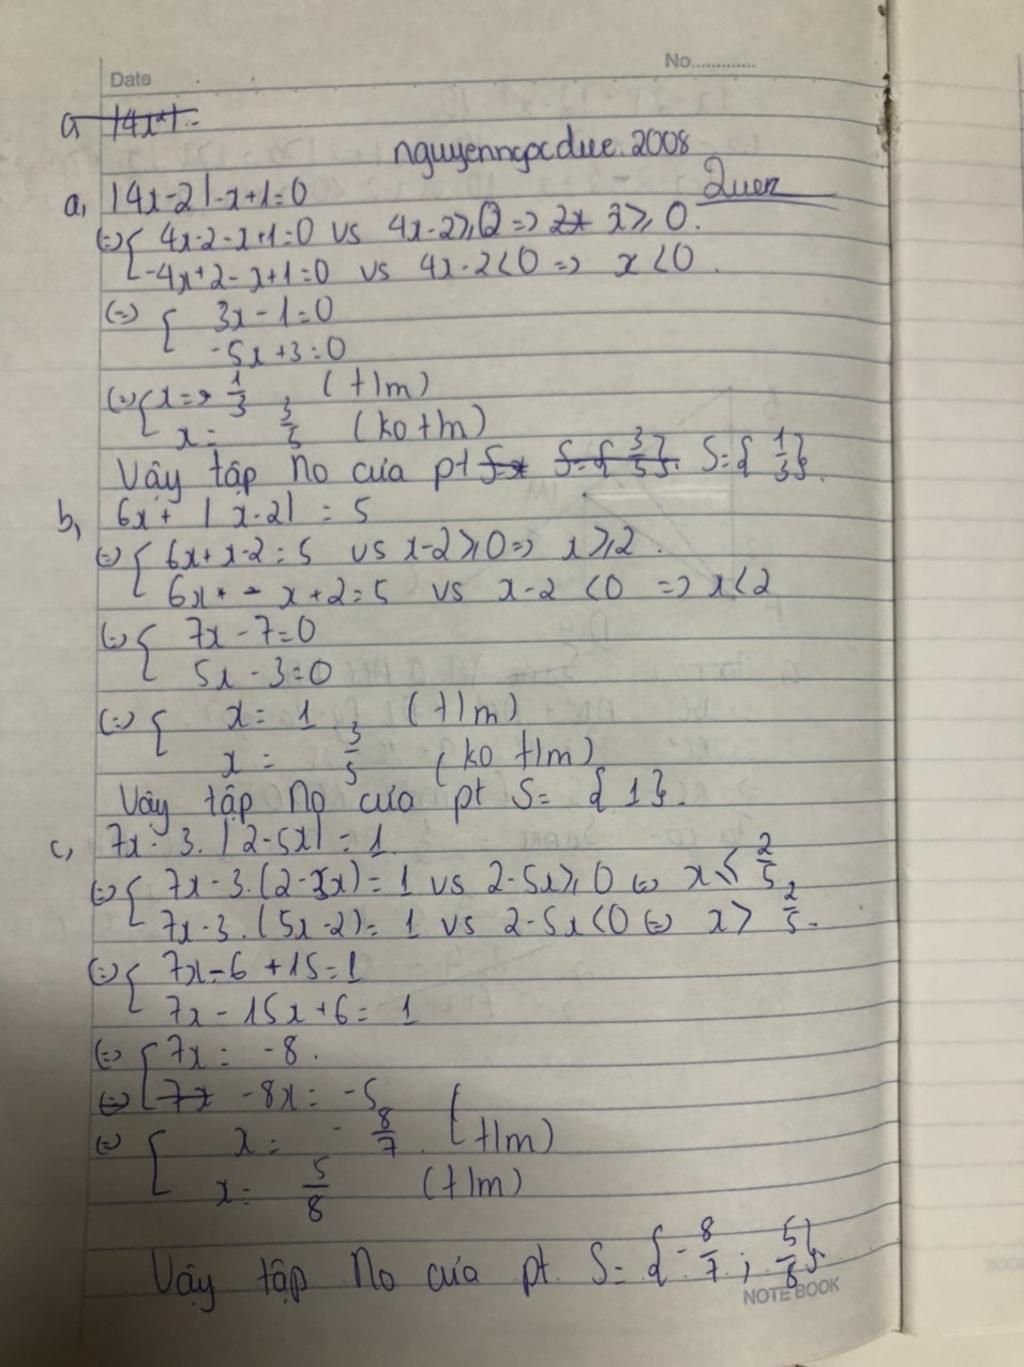 Date
No.............
a |4x+1 =
nguyenngocduc.2008
Quen
a, |4x-2|-x+1=0
(=) { 4x-2-x+1=0 vs 4x-2≥0 => 2x x≥0.
-4x+2-x+1=0 vs 4x-2<0 => x<0.
(=) { 3x-1=0
-5x+3=0
(=) { x=> 1/3 (tlm)
x= 3/5 (ko tm)
Vậy tập No của pt S= S={3/5}. S={1/3}.
b, 6x+ |x-2| = 5
(=) { 6x+x-2=5 vs x-2≥0 => x≥2.
6x+ - x+2=5 vs x-2<0 => x<2
(=) { 7x-7=0
5x-3=0
(=) { x= 1 (tlm)
x= 3/5 (ko tlm)
Vậy tập No của pt S= {1}.
c, 7x-3.|2-5x|=1.
(=) { 7x-3.(2-5x)=1 vs 2-5x≥0 (=) x≤ 2/5
7x-3.(5x-2)=1 vs 2-5x<0 (=) x> 2/5.
(=) { 7x-6+15=1
7x-15x+6=1
(=) { 7x= -8.
(=) 7x -8x= -5
(=) { x= -8/7 (tlm)
x= 5/8 (tlm)
Vậy tập No của pt S= {-8/7; 5/8}
NOTE BOOK